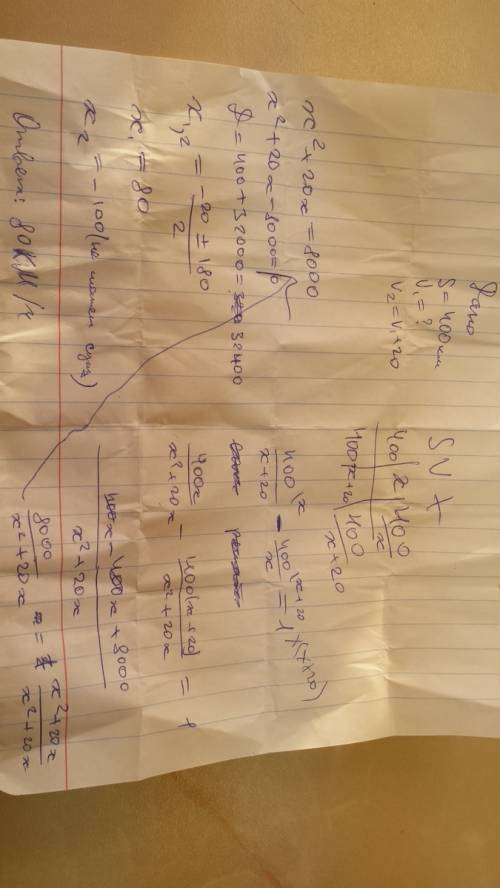 Дано
S = 400 км
V₁ = ?
V₂ = V₁ + 20
S V t
400 | x | 400/x
400 | x+20 | 400/x+20
400\x / x+20 - 400\x+20 / x = 1\x(x+20)
400x / x²+20x - 400(x+20) / x²+20x = 1
400x - 400x + 8000 / x²+20x
8000 / x²+20x = x²+20x / x²+20x
x² + 20x = 8000
x² + 20x - 8000 = 0
D = 400 + 32000 = 32400
x₁,₂ = -20 ± 180 / 2
x₁ = 80
x₂ = -100 (не может
Ответ: 80 км/ч